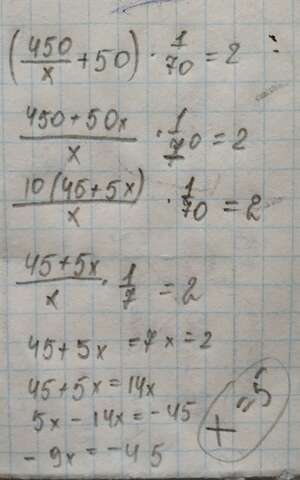 (450/x + 50) · 1/70 = 2
(450 + 50x)/x · 1/70 = 2
10(45 + 5x)/x · 1/70 = 2
(45 + 5x)/x · 1/7 = 2
45 + 5x = 7x = 2
45 + 5x = 14x
5x - 14x = -45
-9x = -45
+ „5